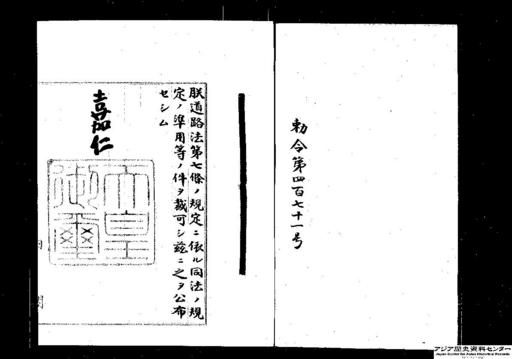 勅令第四百七十一号
朕道路法第七條ノ規定ニ依ル同法ノ規
定ノ準用等ノ件ヲ裁可シ茲ニ之ヲ公布
セシム
嘉仁
天皇御璽
アジア歴史資料センター
Japan Center for Asian Historical Records